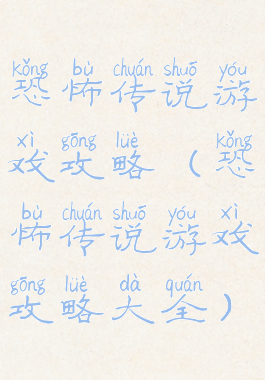 kǒng bù chuán shuō yóu
恐怖传说游
xì gōng lüè kǒng
戏攻略（恐
bù chuán shuō yóu xì
怖传说游戏
gōng lüè dà quán
攻略大全）